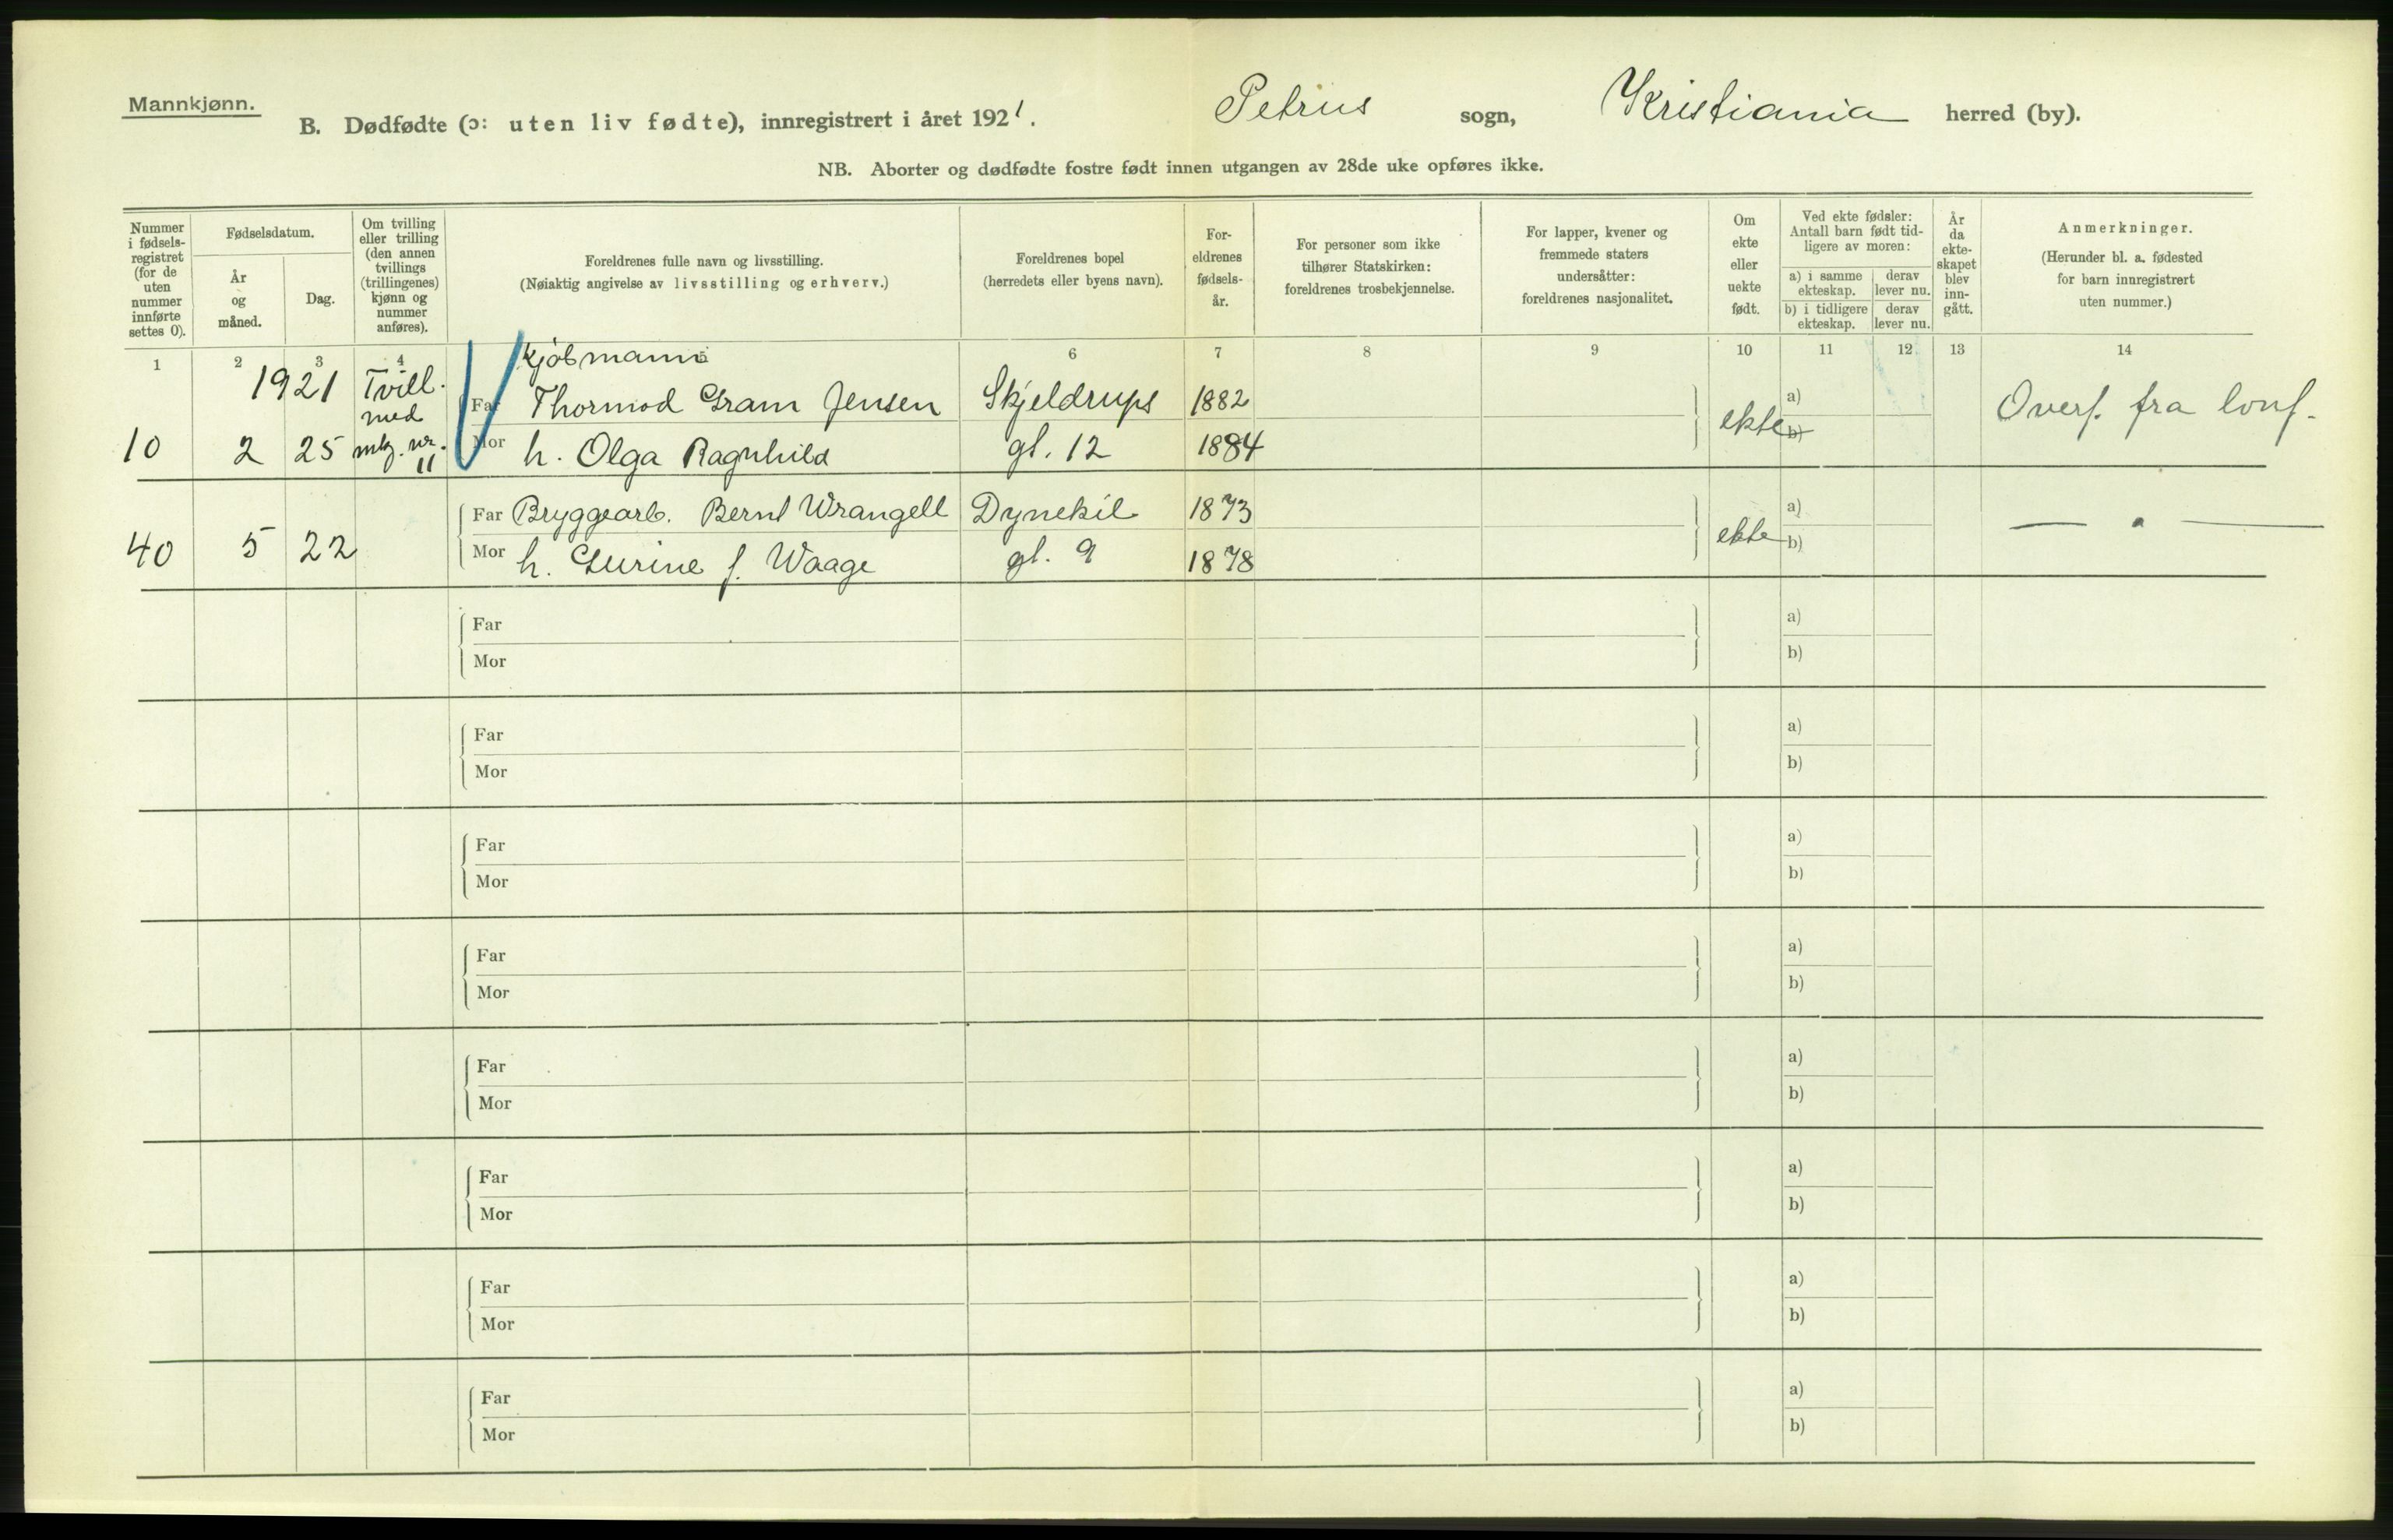 Mannkjønn.
B. Dødfødte (ɔ: uten liv fødte), innregistrert i året 1921. Petrus sogn, Kristiania herred (by).
NB. Aborter og dødfødte fostre født innen utgangen av 28de uke opføres ikke.
Nummer i fødsels-registret (for de uten nummer innførte settes 0).
Fødselsdatum.
År og måned.
Dag.
Om tvilling eller trilling (den annen tvillings (trillingenes) kjønn og nummer anføres).
Foreldrenes fulle navn og livsstilling.
(Nøiaktig angivelse av livsstilling og erhverv.)
Foreldrenes bopel
(herredets eller byens navn).
For-eldrenes fødsels-år.
For personer som ikke tilhører Statskirken: foreldrenes trosbekjennelse.
For lapper, kvener og fremmede staters undersåtter: foreldrenes nasjonalitet.
Om ekte eller uekte født.
Ved ekte fødsler: Antall barn født tid-ligere av moren:
a) i samme ekteskap. derav lever nu.
b) i tidligere ekteskap. derav lever nu.
År da ekte-skapet blev inn-gått.
Anmerkninger.
(Herunder bl. a. fødested for barn innregistrert uten nummer.)
1 2 3 4 5 6 7 8 9 10 11 12 13 14
1921 Tvill. med Kjøbmann
Far Thormod Gram Jensen Skjeldrups 1882 ekte a) Overf. fra
10 2 25 nr. 11 Mor h. Olga Ragnhild gt. 12 1884 b)
Far Bryggearb. Bernt Wrangell Dynekil 1873 ekte a) — " —
40 5 22 Mor h. Gurine f. Waage gt. 9 1878 b)
Far a)
Mor b)
Far a)
Mor b)
Far a)
Mor b)
Far a)
Mor b)
Far a)
Mor b)
Far a)
Mor b)
Far a)
Mor b)
Far a)
Mor b)